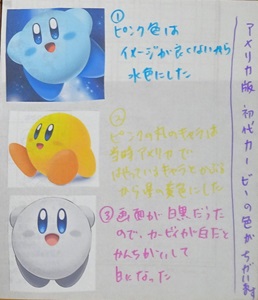 アメリカ版 初代カービーの色がちがい
①
ピンク色は
イメージが良くないから
水色にした
②
ピンクの丸のキャラは
当時アメリカで
キャラとかぶる
から 黄色にした
③ 画面が白黒だった
ので、カービィが白だと
かんちがいして
白になった